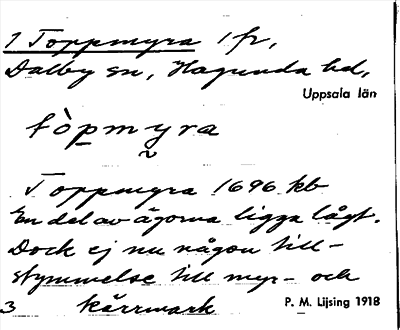 1 Toppmyra 1 fr,
Dalby sn, Hagunda hd,
Uppsala län
tòpmyra
Toppmyra 1696 kb
En del av ägorna ligga lågt.
Dock ej nu någon till-
stymmelse till myr- och
3 kärrmark
P. M. Lijsing 1918